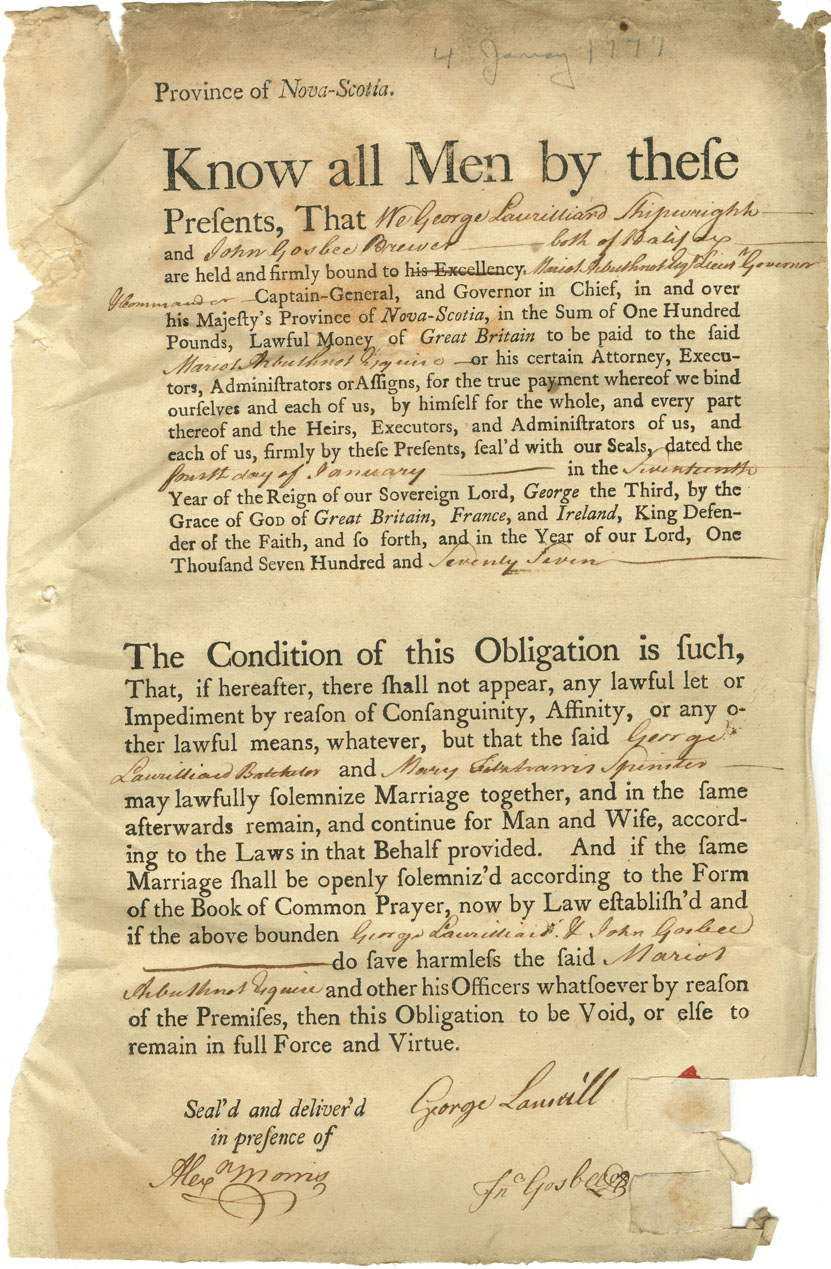 4 Janry 1777
Province of Nova-Scotia.
Know all Men by theſe
Preſents, That We George Laurilliard Shipwright
and John Gosbee Brewer both of Halifax
are held and firmly bound to his Excellency. Mariot Arbuthnot Esqr Lieut Governor
& Commander Captain-General, and Governor in Chief, in and over
his Majeſty's Province of Nova-Scotia, in the Sum of One Hundred
Pounds, Lawful Money of Great Britain to be paid to the ſaid
Mariot Arbuthnot Esquire or his certain Attorney, Execu-
tors, Adminiſtrators or Aſſigns, for the true payment whereof we bind
ourſelves and each of us, by himſelf for the whole, and every part
thereof and the Heirs, Executors, and Adminiſtrators of us, and
each of us, firmly by theſe Preſents, ſeal'd with our Seals, dated the
fourth day of January in the Seventeenth
Year of the Reign of our Sovereign Lord, George the Third, by the
Grace of God of Great Britain, France, and Ireland, King Defen-
der of the Faith, and ſo forth, and in the Year of our Lord, One
Thouſand Seven Hundred and Seventy Seven
The Condition of this Obligation is ſuch,
That, if hereafter, there ſhall not appear, any lawful let or
Impediment by reaſon of Conſanguinity, Affinity, or any o-
ther lawful means, whatever, but that the ſaid George
Laurilliard Batchelor and Mary Fitzharris Spinster
may lawfully ſolemnize Marriage together, and in the ſame
afterwards remain, and continue for Man and Wife, accord-
ing to the Laws in that Behalf provided. And if the ſame
Marriage ſhall be openly ſolemniz'd according to the Form
of the Book of Common Prayer, now by Law eſtabliſh'd and
if the above bounden George Laurilliard & John Gosbee
do ſave harmleſs the ſaid Mariot
Arbuthnot Esquire and other his Officers whatſoever by reaſon
of the Premiſes, then this Obligation to be Void, or elſe to
remain in full Force and Virtue.
Seal'd and deliver'd
in preſence of
George Laurill
Alexr Morris
Jno Gosbee